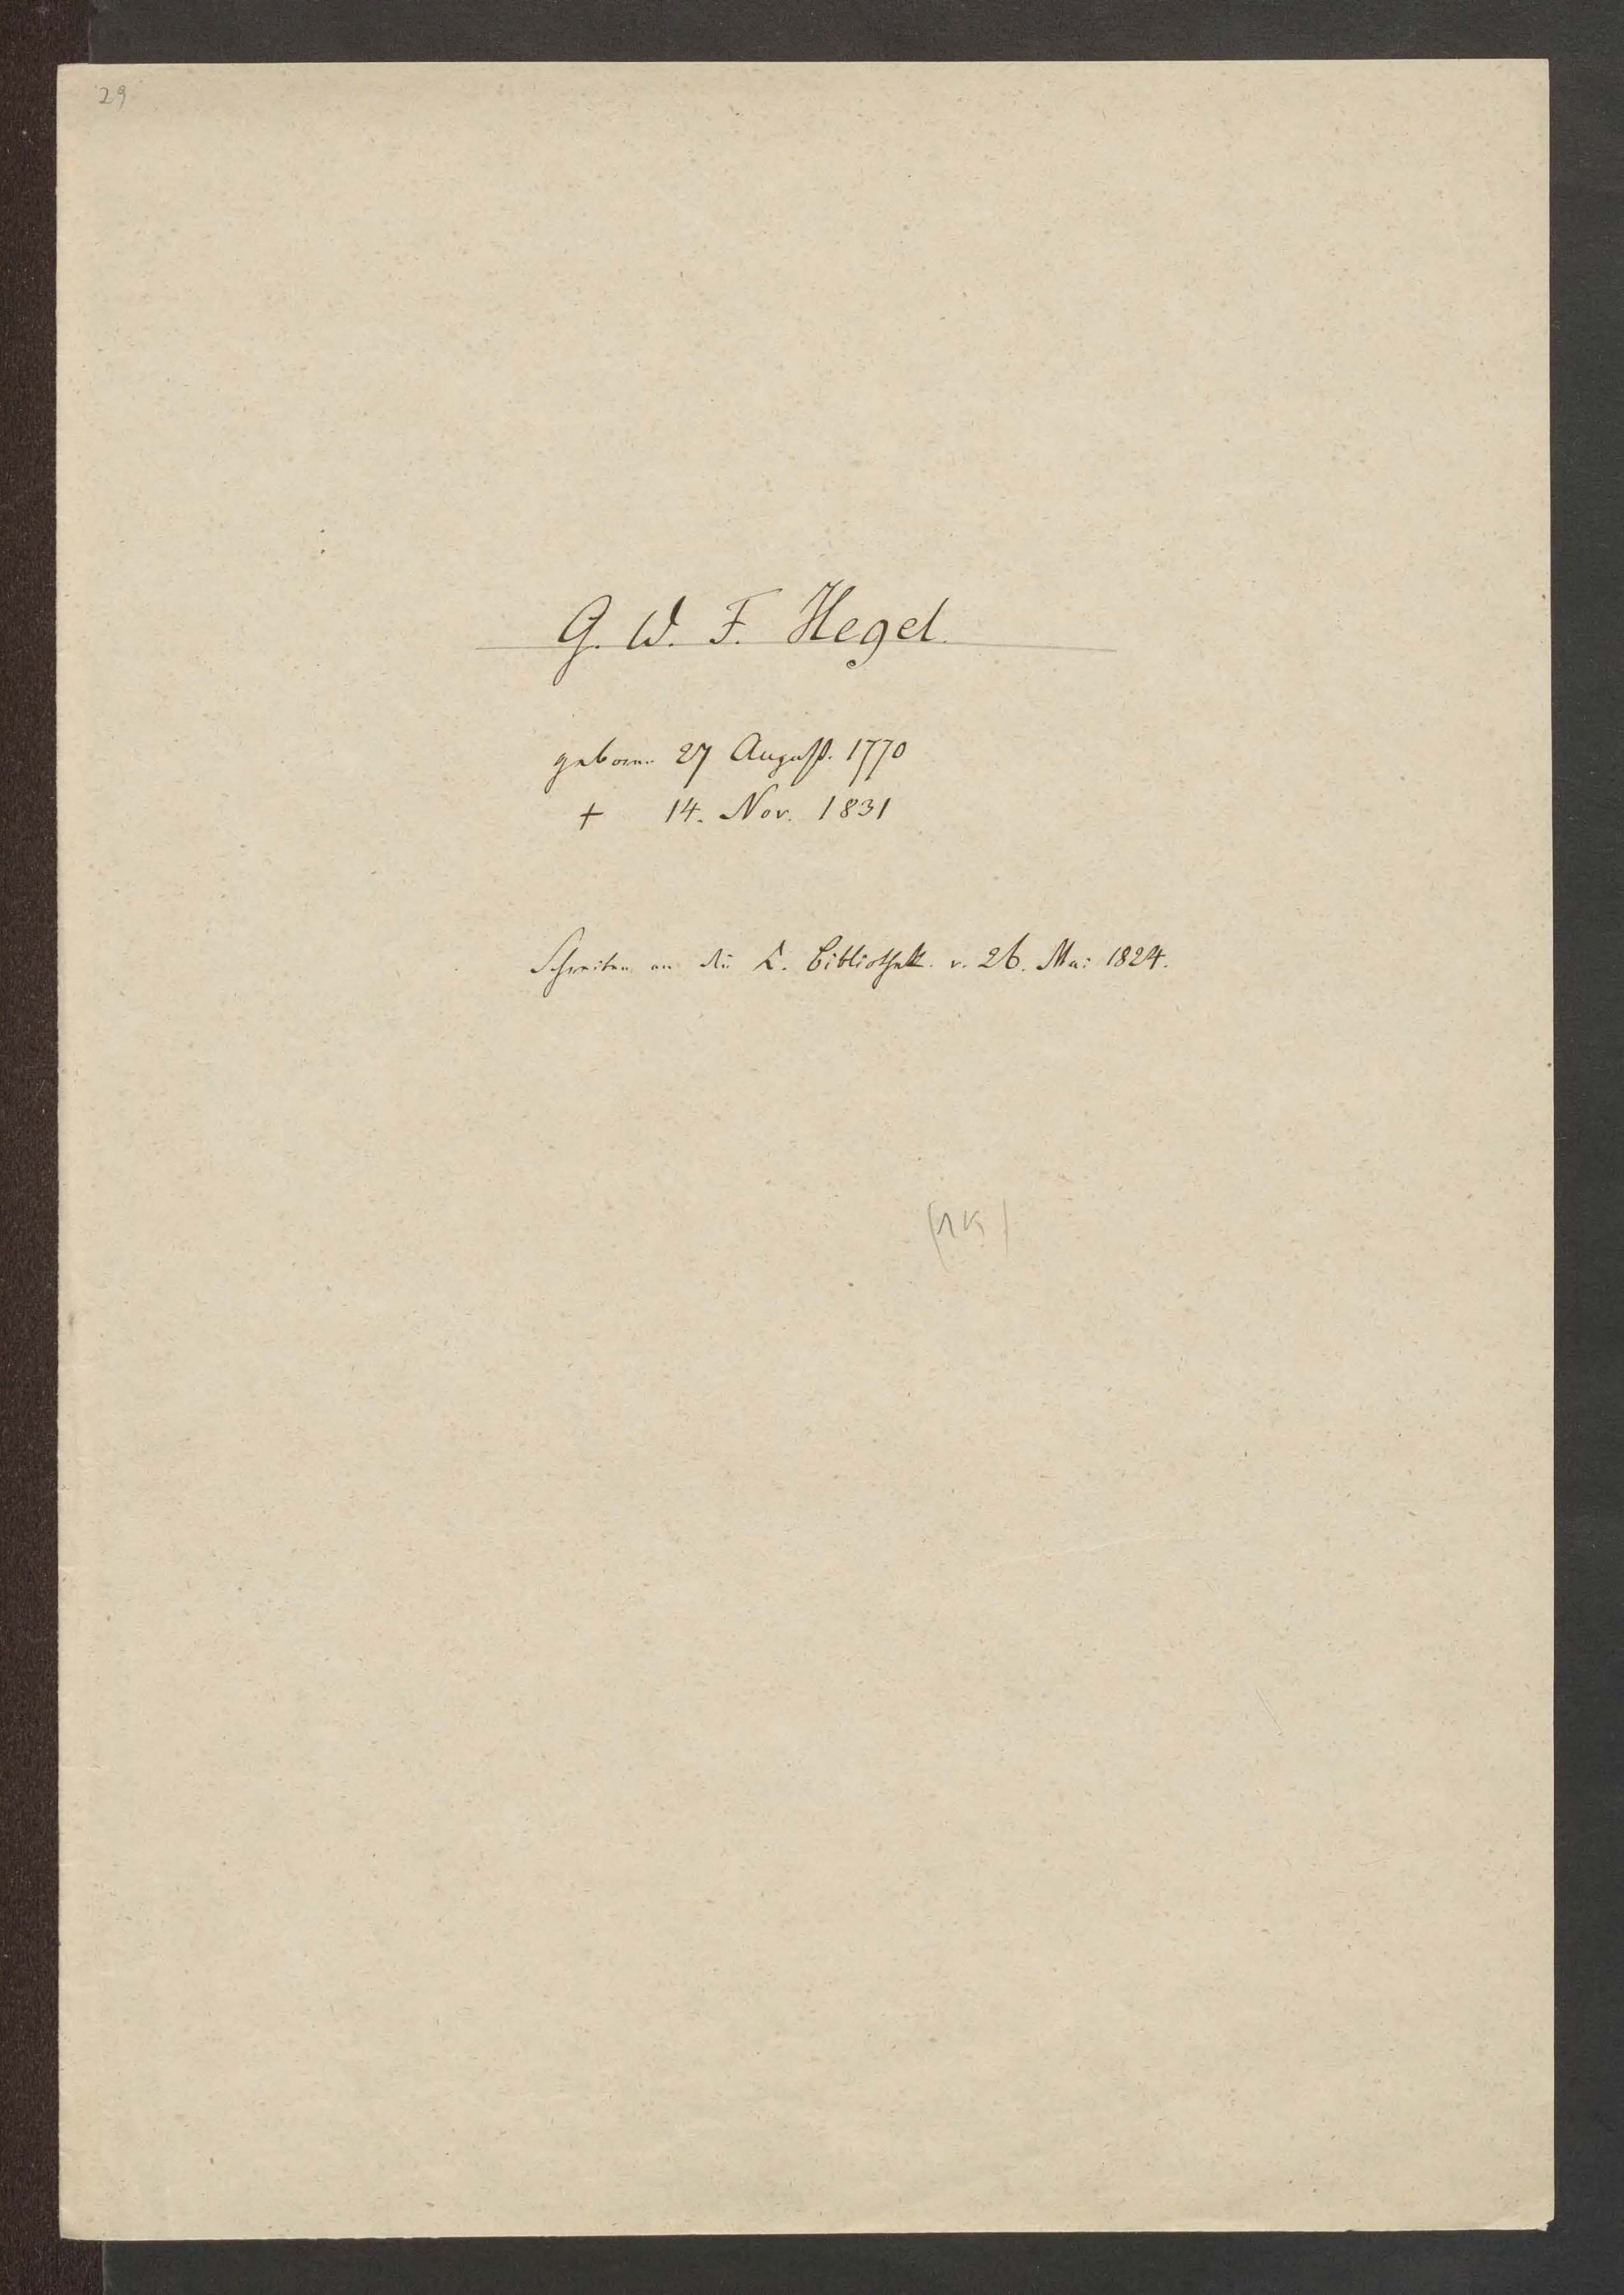 29
G. W. F. Hegel.
geboren 27 August. 1770
† 14. Nov. 1831
Schreiben an die K. Bibliothek. v. 26. Mai 1824.